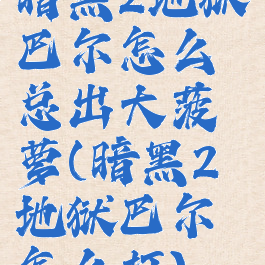 暗黑2地狱
巴尔怎么
总出大菠
萝(暗黑2
地狱巴尔
怎么打)